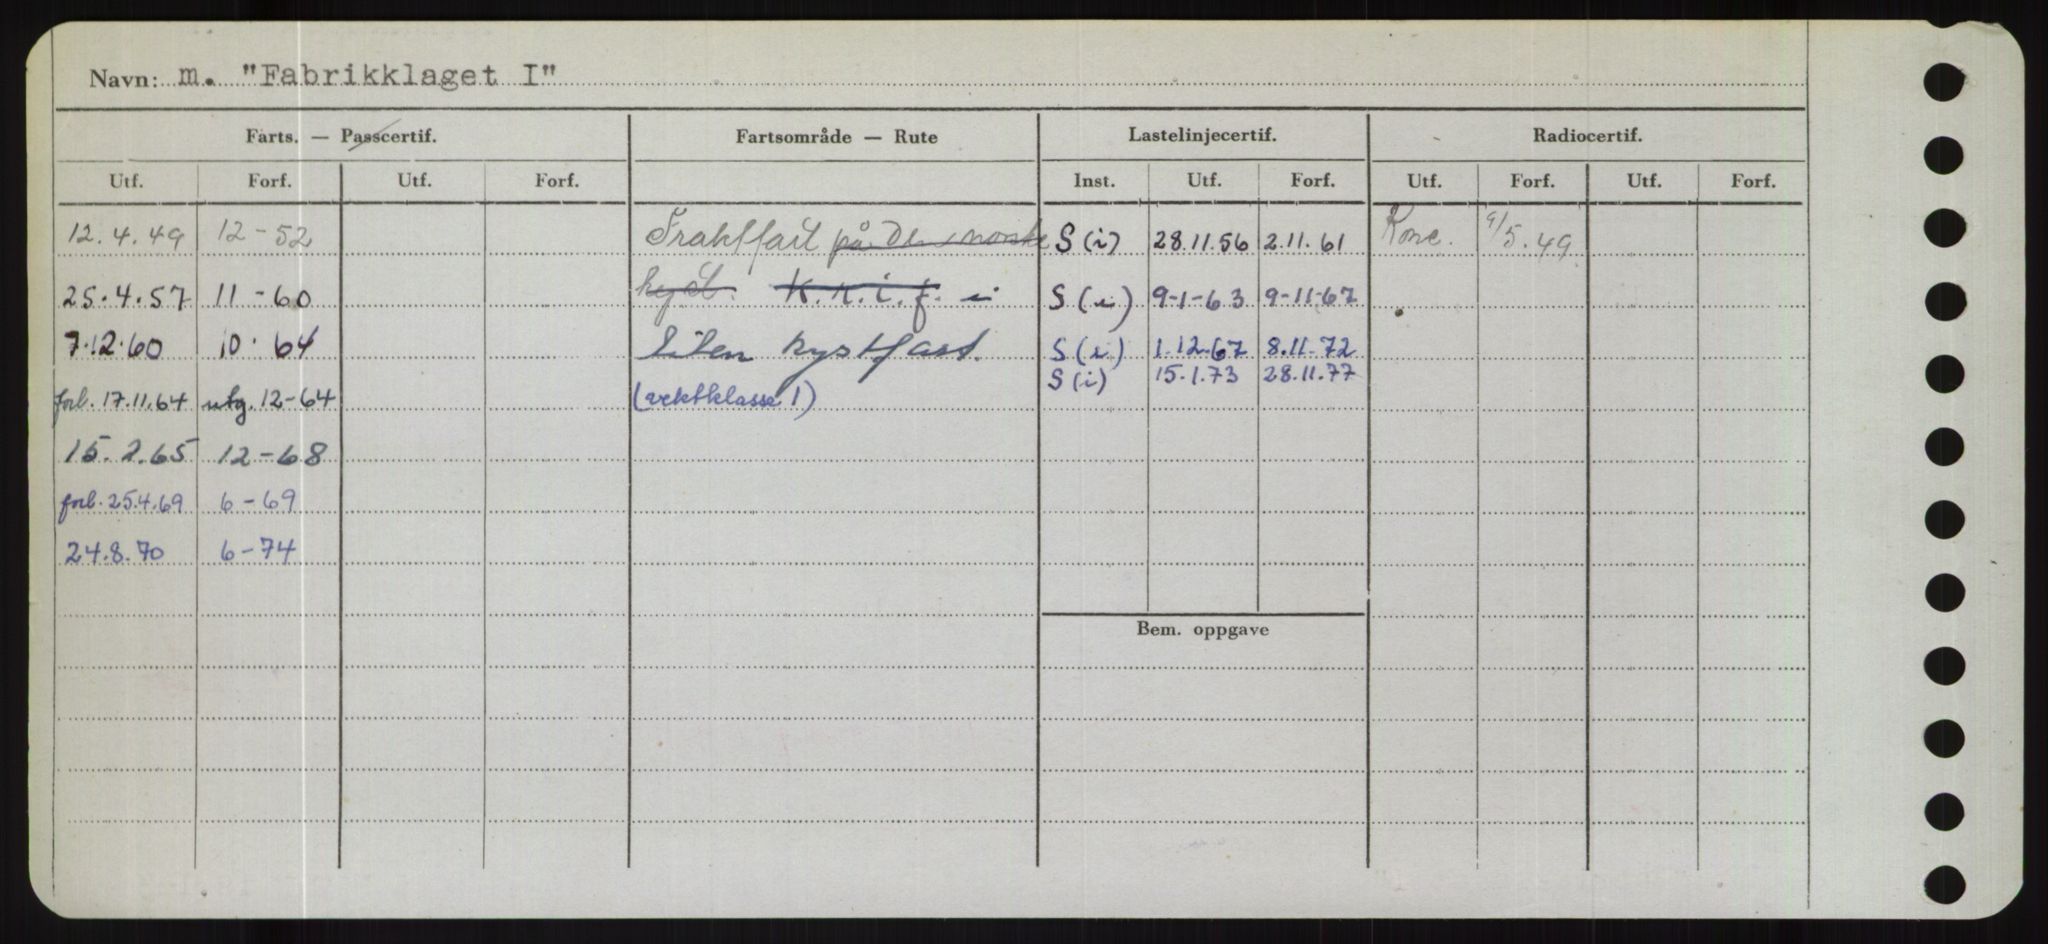 Navn: m. "Fabrikklaget I"
Farts. — Passcertif. Fartsområde — Rute Lastelinjecertif. Radiocertif.
Utf. Forf. Utf. Forf. Inst. Utf. Forf. Utf. Forf. Utf. Forf.
12.4.49 12-52 Fraktfart på den norske S (i) 28.11.56 2.11.61 Konc. 9/5.49
25.4.57 11-60 kyst. K.n.i.f. i S (i) 9-1-63 9-11-67
7.12.60 10.64 liten kystfart. S (i) 1.12.67 8.11.72
S (i) 15.1.73 28.11.77
forl. 17.11.64 utg. 12-64 (vektklasse 1)
15.2.65 12-68
forl. 25.4.69 6-69
24.8.70 6-74
Bem. oppgave